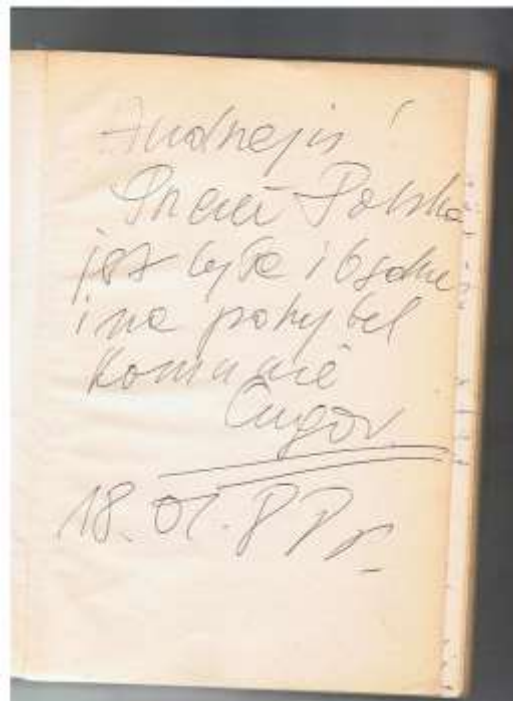 Andrzeju!
Przecież Polska
jest była i będzie
i na pohybel
komunie
18.01.89 r.